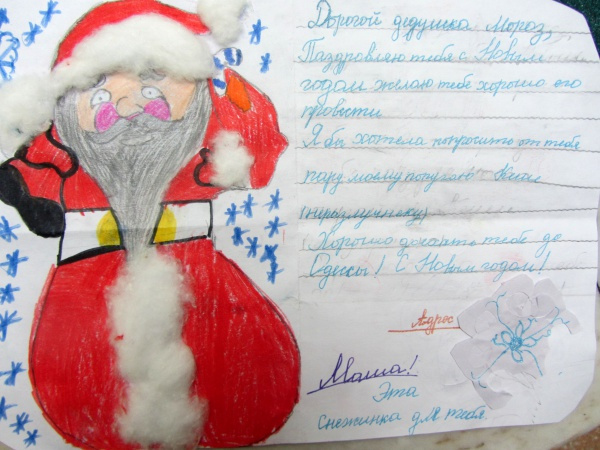 Дорогой дедушка Мороз,
Паздровляю тебя с Новым
годом желаю тебе хорошо его
провисти
Я бы хотела попросить от тебя
пару моему попугаю Кеши
(неразлучнику)
Хорошо доехать тебе до
Одессы! С Новым годом!
Адрес
Маша!
Эта
снежинка для тебя.